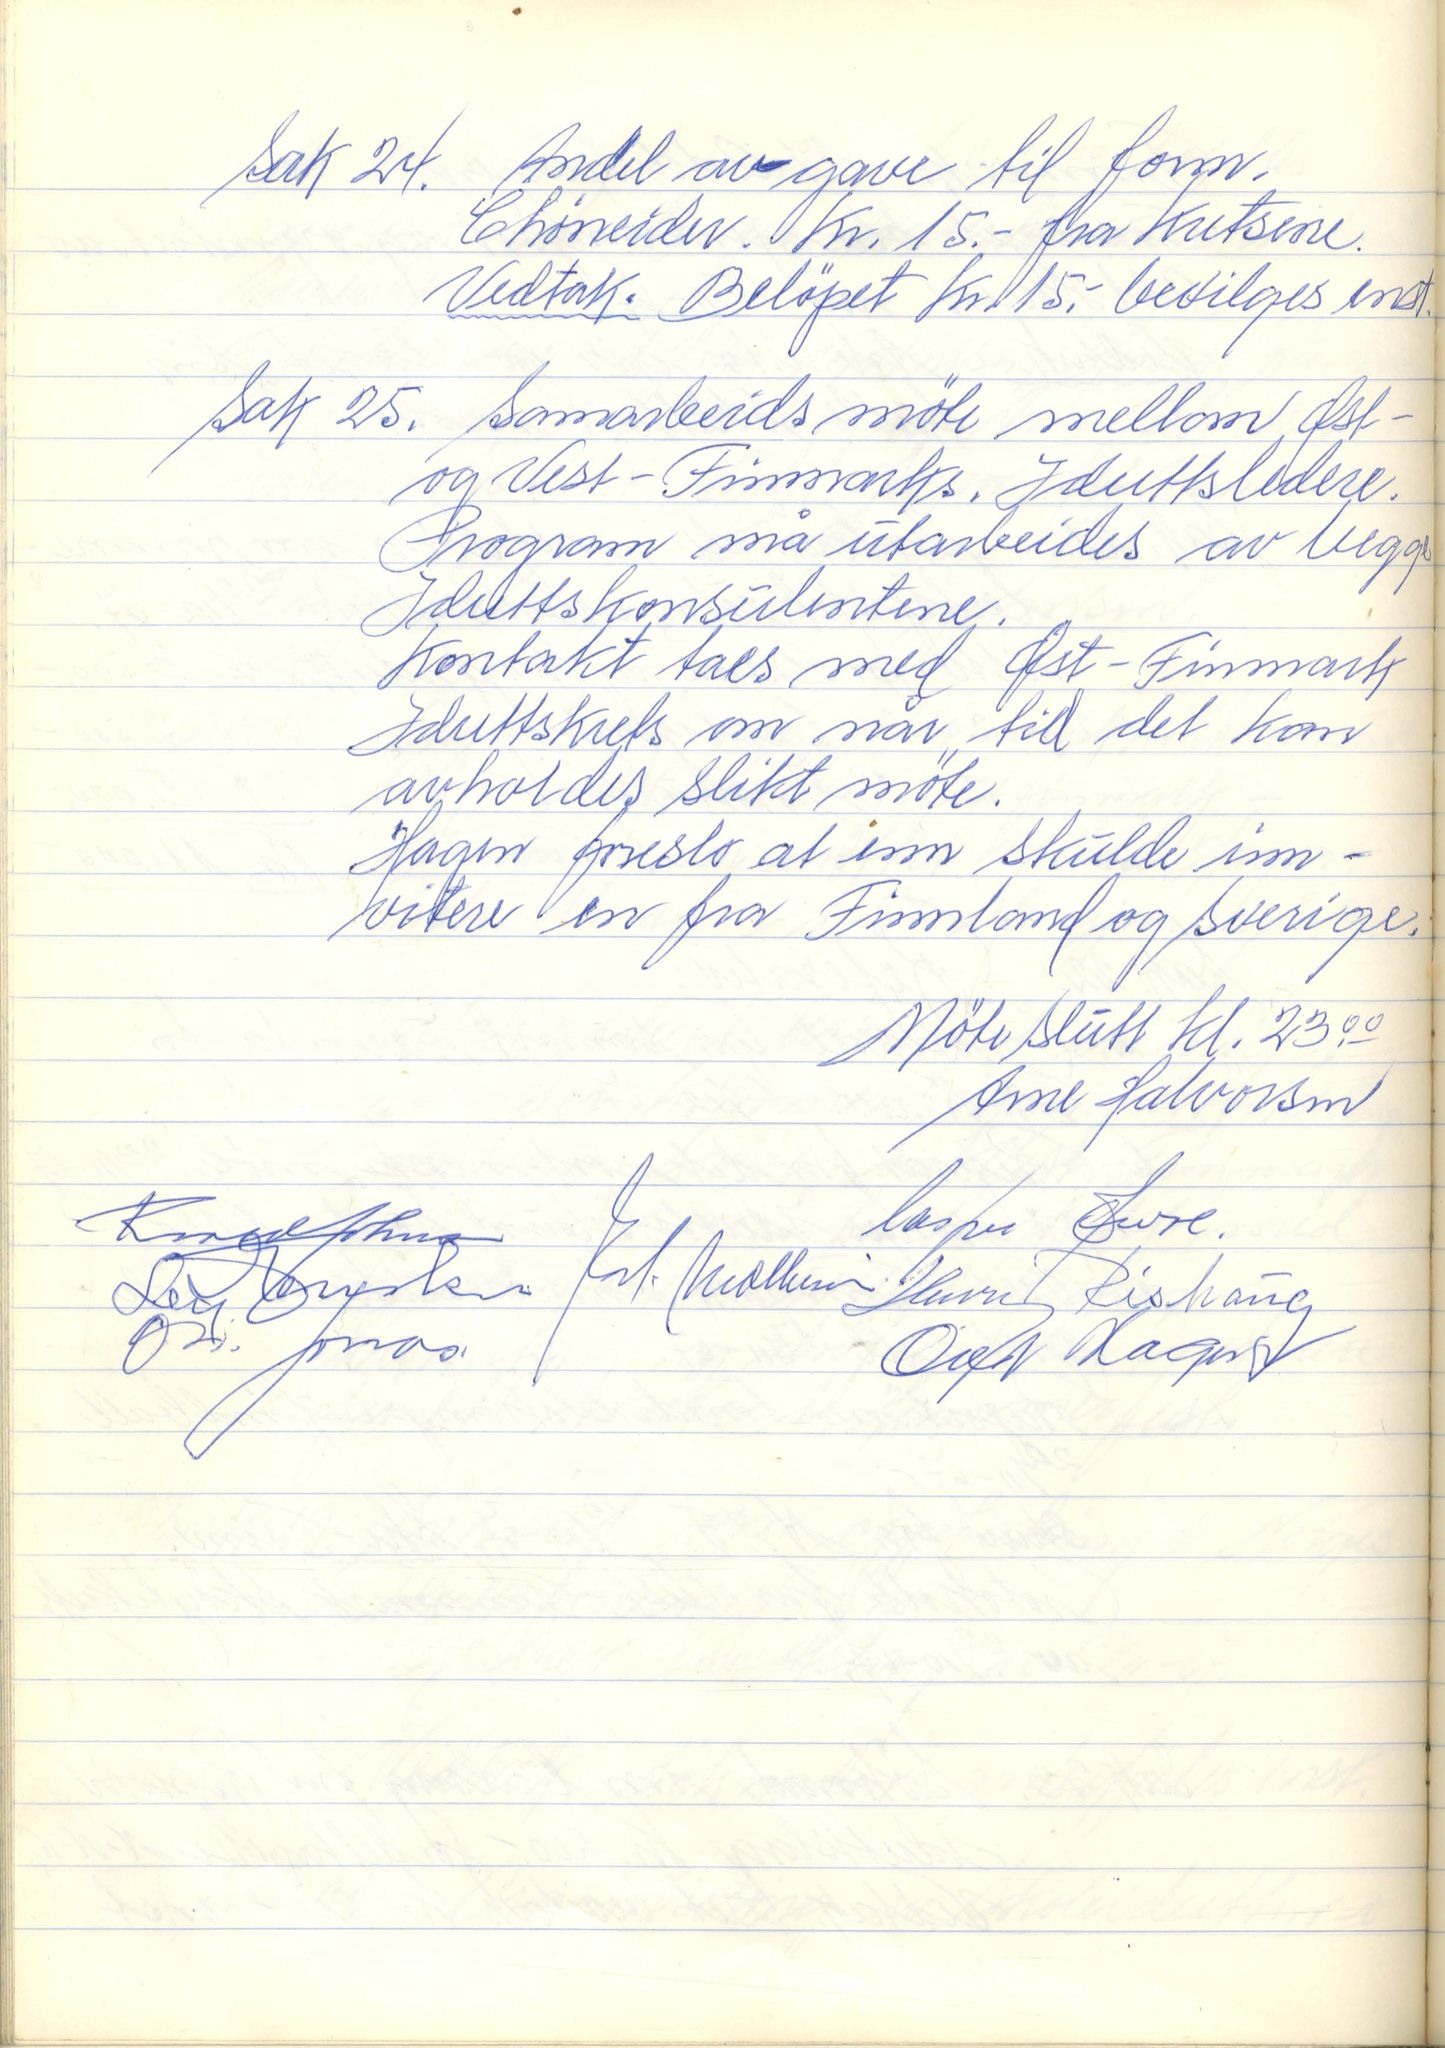 Sak 24. Andel av gave til form.
Chöneider. Kr. 15.- fra Kretsene.
Vedtak. Belöpet Kr. 15.- bevilges enst.
Sak 25. Samarbeids möte mellom Øst-
og Vest-Finnmarks. Idrettsledere.
Program må utarbeides av begge
Idrettskonsulentene.
Kontakt taes med Øst-Finnmark
Idrettskrets om når tid det kan
avholdes slikt möte.
Hagen foreslo at enn skulde inn-
vitere en fra Finnland og Sverige.
Möte slutt kl. 23.00
Arne Halvorsen
Knud Johnsen
Jonas.